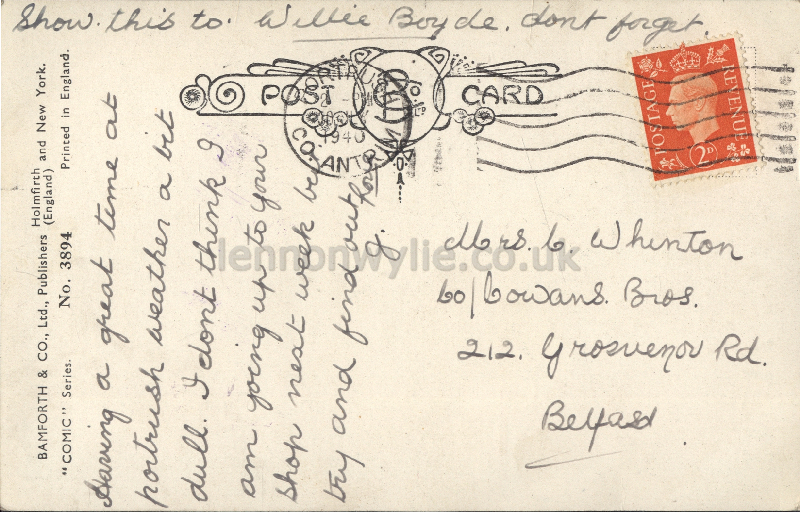 Show this to. Willie Boyde. dont forget.
BAMFORTH & CO., Ltd., Publishers Holmfirth and New York.
(England)
"COMIC" Series. No. 3894 Printed in England.
POST CARD
PORTRUSH
1940
CO. ANTRIM
POSTAGE
REVENUE
2D
Having a great time at
portrush weather a bit
dull. I dont think I
am going up to your
shop next week be
try and find out
J.
Mrs. C Whinton
Co/Cowans. Bros.
212. Grosvenor Rd.
Belfast
lennonwylie.co.uk